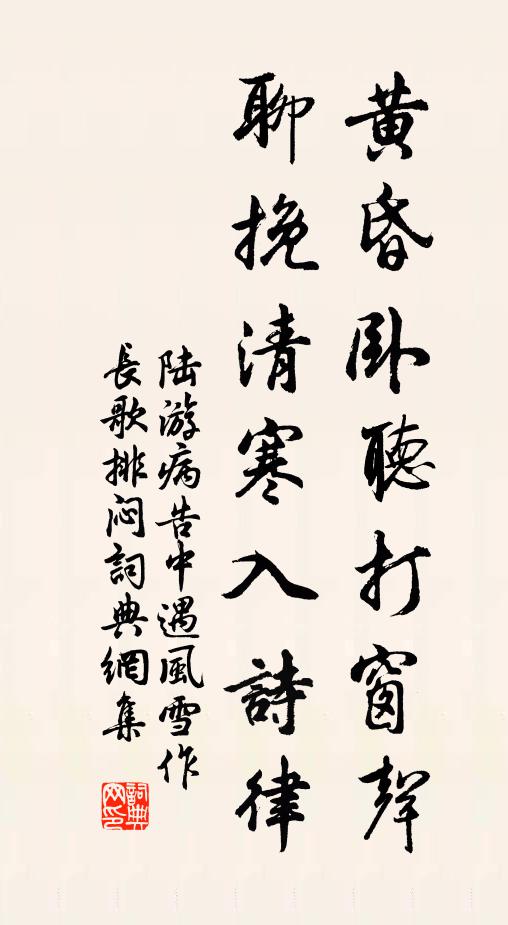 黃昏臥聽打窗聲
聊挽清寒入詩律
陸游病告中遇風雪作
長歌排悶詞典網集
詞典网印